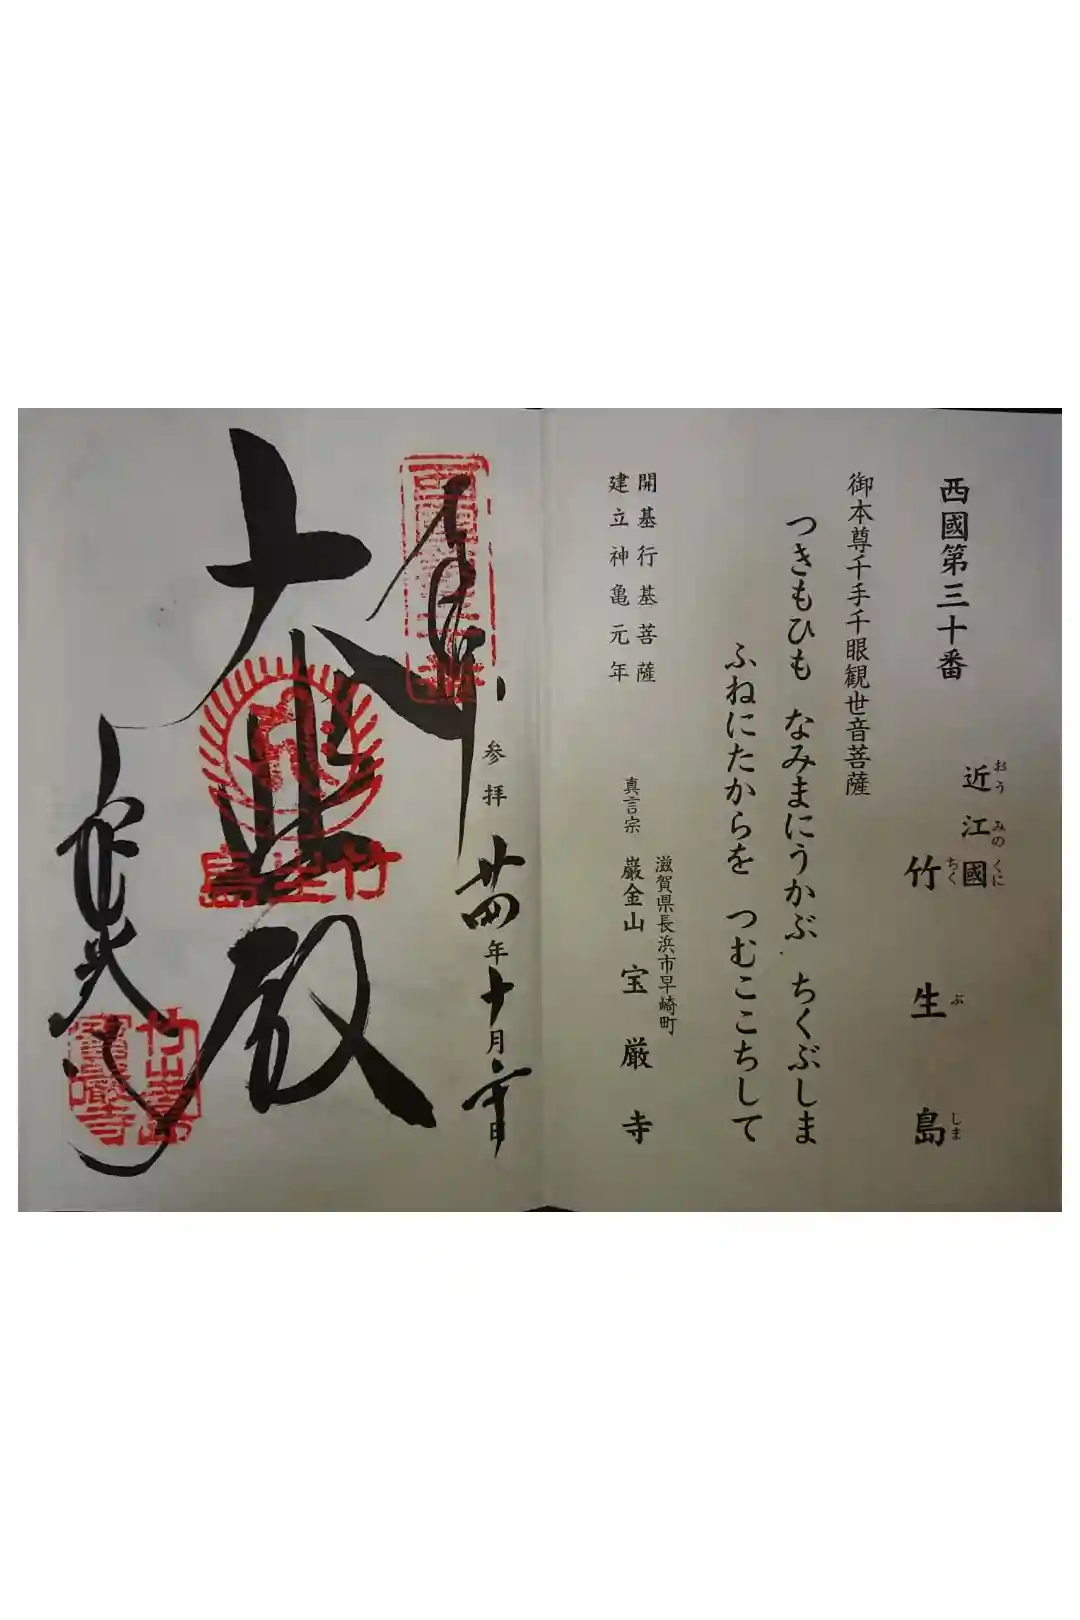 西國第三十番
近江國
おうみのくに
竹生島
ちくぶしま
御本尊千手千眼観世音菩薩
つきもひも なみまにうかぶ ちくぶしま
ふねにたからを つむここちして
開基行基菩薩
建立神亀元年
滋賀県長浜市早崎町
真言宗 巌金山 宝厳寺
奉
参拝 廿四年十月
日
大悲殿
竹生島
竹生島
寶嚴寺